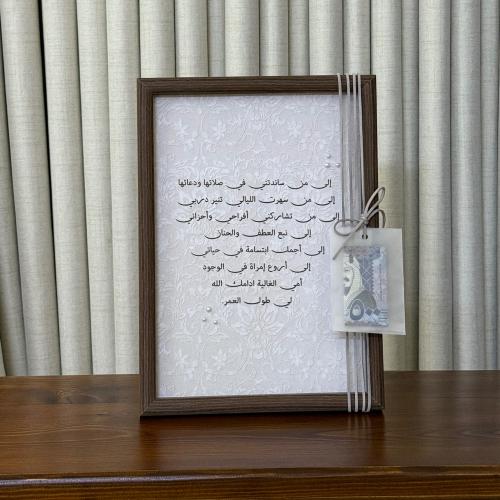 إلى من ساندتني في صلاتها ودعائها
إلى من سهرت الليالي تنير دربي
إلى من تشاركني أفراحي وأحزاني
إلى نبع العطف والحنان
إلى أجمل ابتسامة في حياتي
إلى أروع إمراة في الوجود
أمي الغالية ادامك الله
لي طول العمر.
٥٠٠